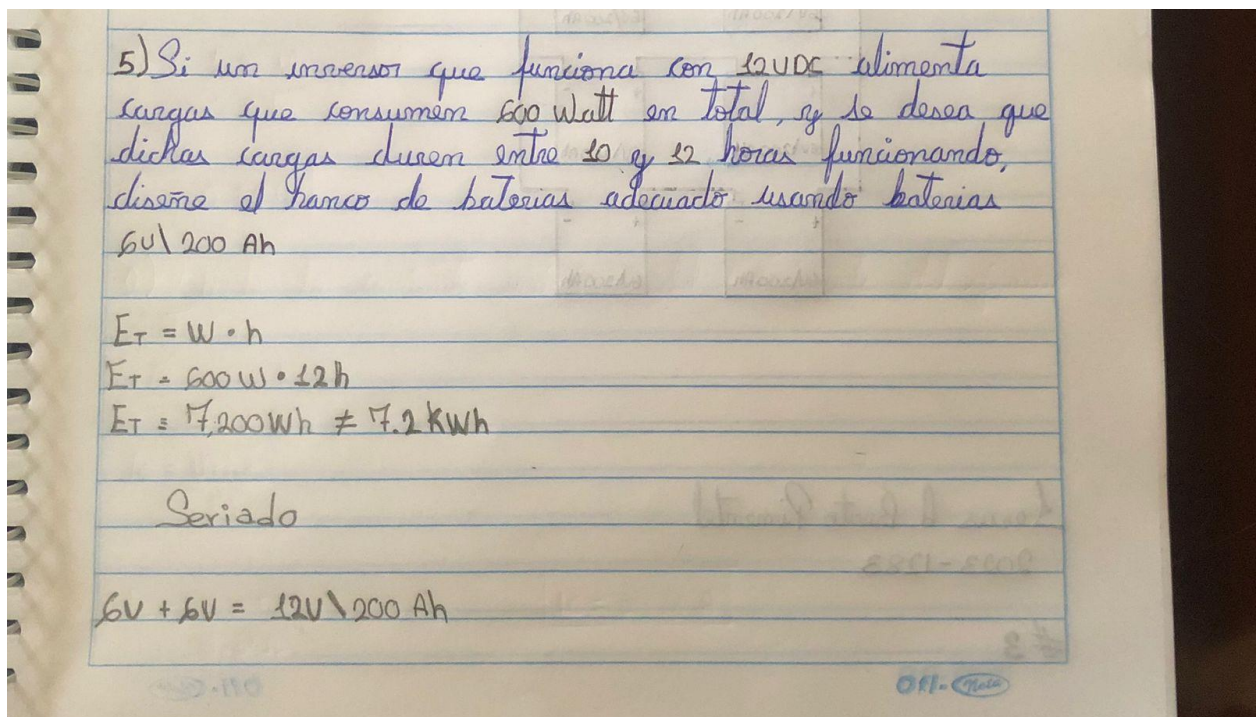 5) Si un inversor que funciona con 12VDC alimenta
cargas que consumen 600 Watt en total, y se desea que
dichas cargas duren entre 10 y 12 horas funcionando,
diseñe el banco de baterias adecuado usando baterias
6V\200 Ah
ET = W · h
ET = 600W · 12h
ET = 7,200Wh ≠ 7.2 KWh
Seriado
6V + 6V = 12V\200 Ah